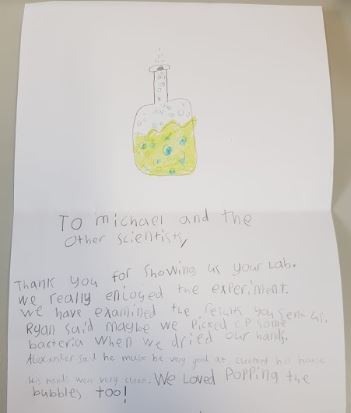 To michael and the
Other scientists,
Thank you for showing us your Lab.
We really enjoyed the experiment.
We have examined the results you sent us.
Ryan said maybe we picked up some
bacteria when we dried our hands.
Alexander said he must be very good at his
his hands were very clean. We Loved Popping the
bubbles too!